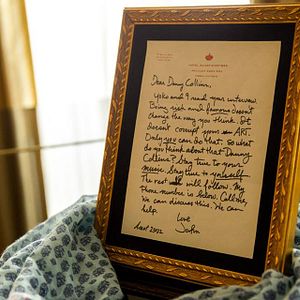 Dear Danny Collins,
Yoko and I read your interview.
Being rich and famous doesn't
change the way you think. It
doesn't corrupt your ART.
Only you can do that. So what
do you think about that Danny
Collins? Stay true to your
music. Stay true to yourself
The rest will follow. My
Phone number is below. Call me,
We can discuss this. We can
help.
Love
John